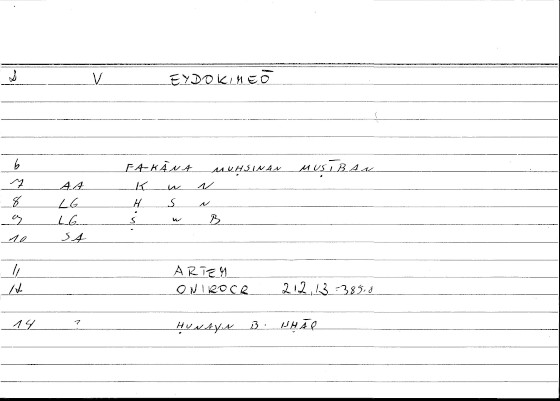 2 V EYDOKIMEŌ
6 FA-KĀNA MUḤSINAN MUṢĪBAN
7 AA K W N
8 LG Ḥ S N
9 LG Ṣ W B
10 SA
11 ARTEM
12 ONIROCR 212,13 =385.8
14 ? ḤUNAYN B. ISḤĀQ